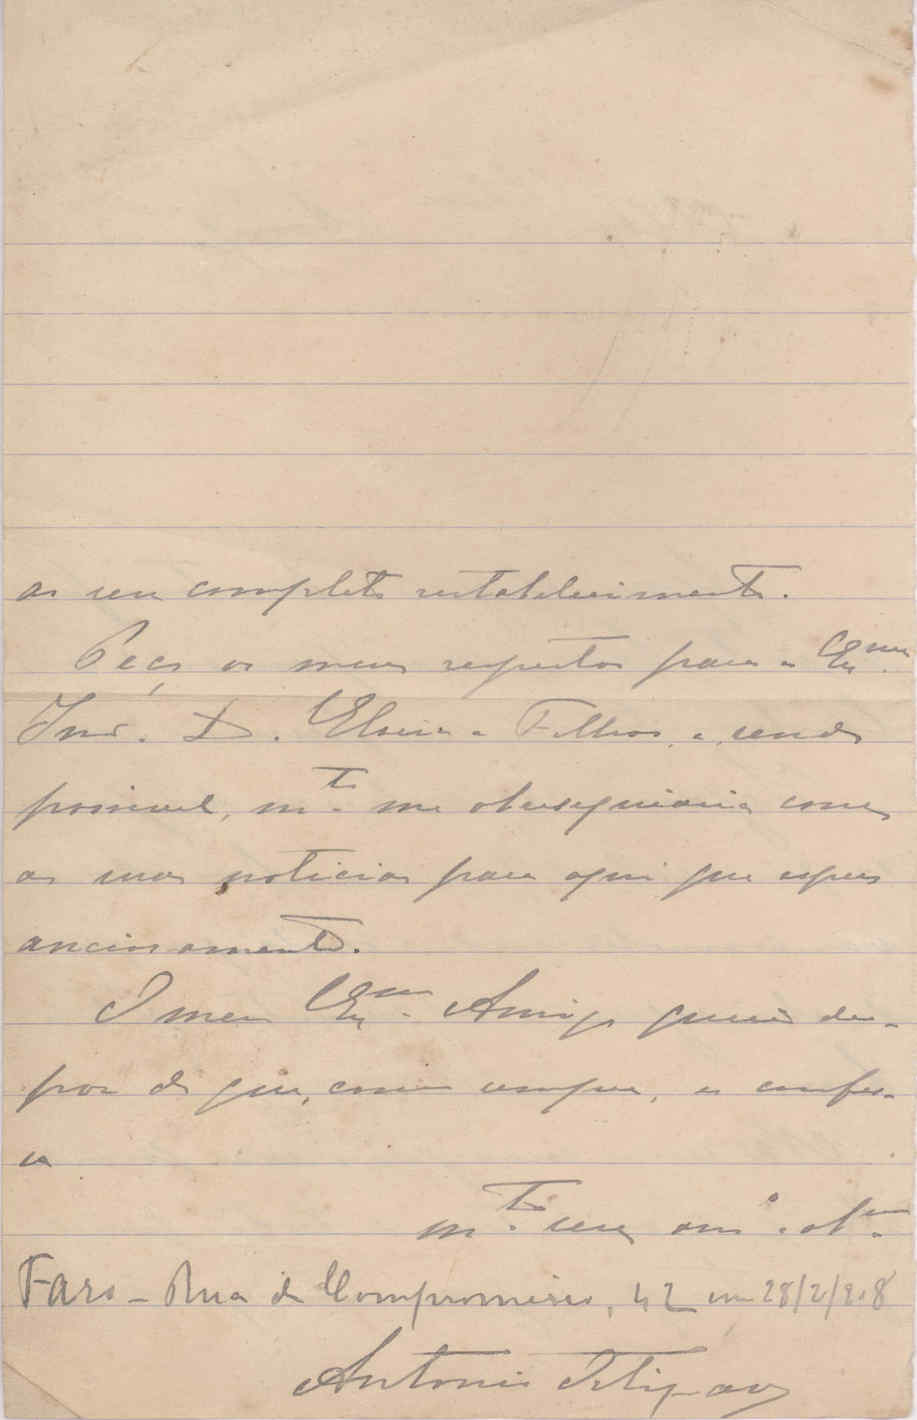 ao seu completo restabelecimento.
Peço os meus respeitos para a Exma.
Snrª. D. Elvira e Filhos, e, sendo
possivel, mto. me obsequiaria com
as suas noticias para aqui que espero
anciosamente.
O meu Exmo. Amigo queira dis-
por de quem, como sempre, se confes-
sa
mto. seu amº. obrmo.
Faro - Rua do Compromisso, 42 em 28/2/
Antonio